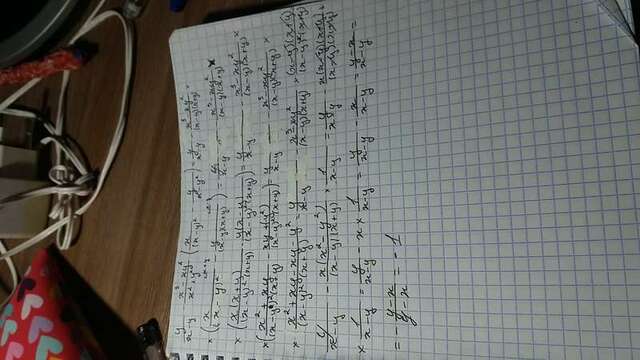 y/(x-y) - (x³-xy²)/(x²+y²) (x/(x-y)² - y/(x²-y²)) = y/(x-y) - (x³-xy²)/((x-y)(x+y)) ×
× (x/(x-y)² - y/((x-y)(x+y))) = y/(x-y) - (x³-xy²)/((x-y)(x+y)) ×
× (x(x+y)/((x-y)²(x+y)) - y(x-y)/((x-y)²(x+y))) = y/(x-y) - (x³-xy²)/((x-y)(x+y)) ×
× (x²+xy/((x-y)²(x+y)) - xy+(y²)/((x-y)²(x+y))) = y/(x-y) - (x³-xy²)/((x-y)(x+y)) ×
× (x²+xy-xy-y²)/((x-y)²(x+y)) = y/(x-y) - (x³-xy²)/((x-y)(x+y)) × (x-y)(x+y)/((x-y)²(x+y))
y/(x-y) - x(x²-y²)/((x-y)(x+y)) × 1/(x-y) = y/(x-y) - x(x-y)(x+y)/((x-y)(x+y)) ×
× 1/(x-y) = y/(x-y) - x × 1/(x-y) = y/(x-y) - x/(x-y) = (y-x)/(x-y) =
= - (y-x)/(y-x) = - 1